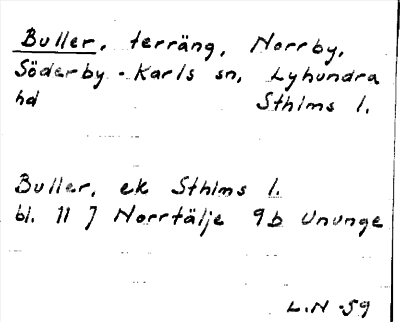 Buller, terräng, Norrby,
Söderby-Karls sn, Lyhundra
hd Sthlms l.
Buller, ek Sthlms l.
bl. 11 J Norrtälje 9b Ununge
L.N -59